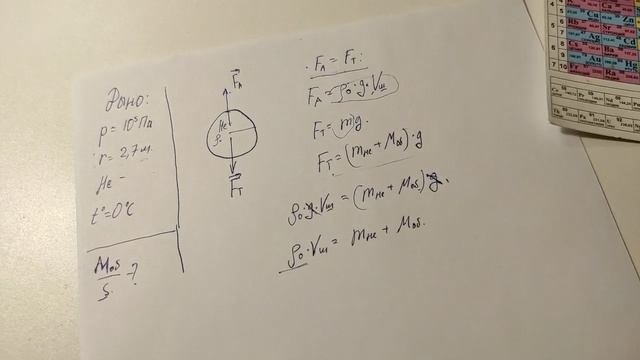 Дано:
p = 10⁵ Па
r = 2,7 м.
He -
t° = 0°C
Mоб
S - ?
F_A
He
F_T
F_A = F_T:
F_A = ρ₀·g·Vш
F_T = mg.
F_T = (m_He + Mоб)·g
ρ₀·g·Vш = (m_He + Mоб)·g.
ρ₀·Vш = m_He + Mоб.
Cu
Zn
Rb
Sr
Ag
Cd
Cs
Ba
Au
Hg
Fr
Ra